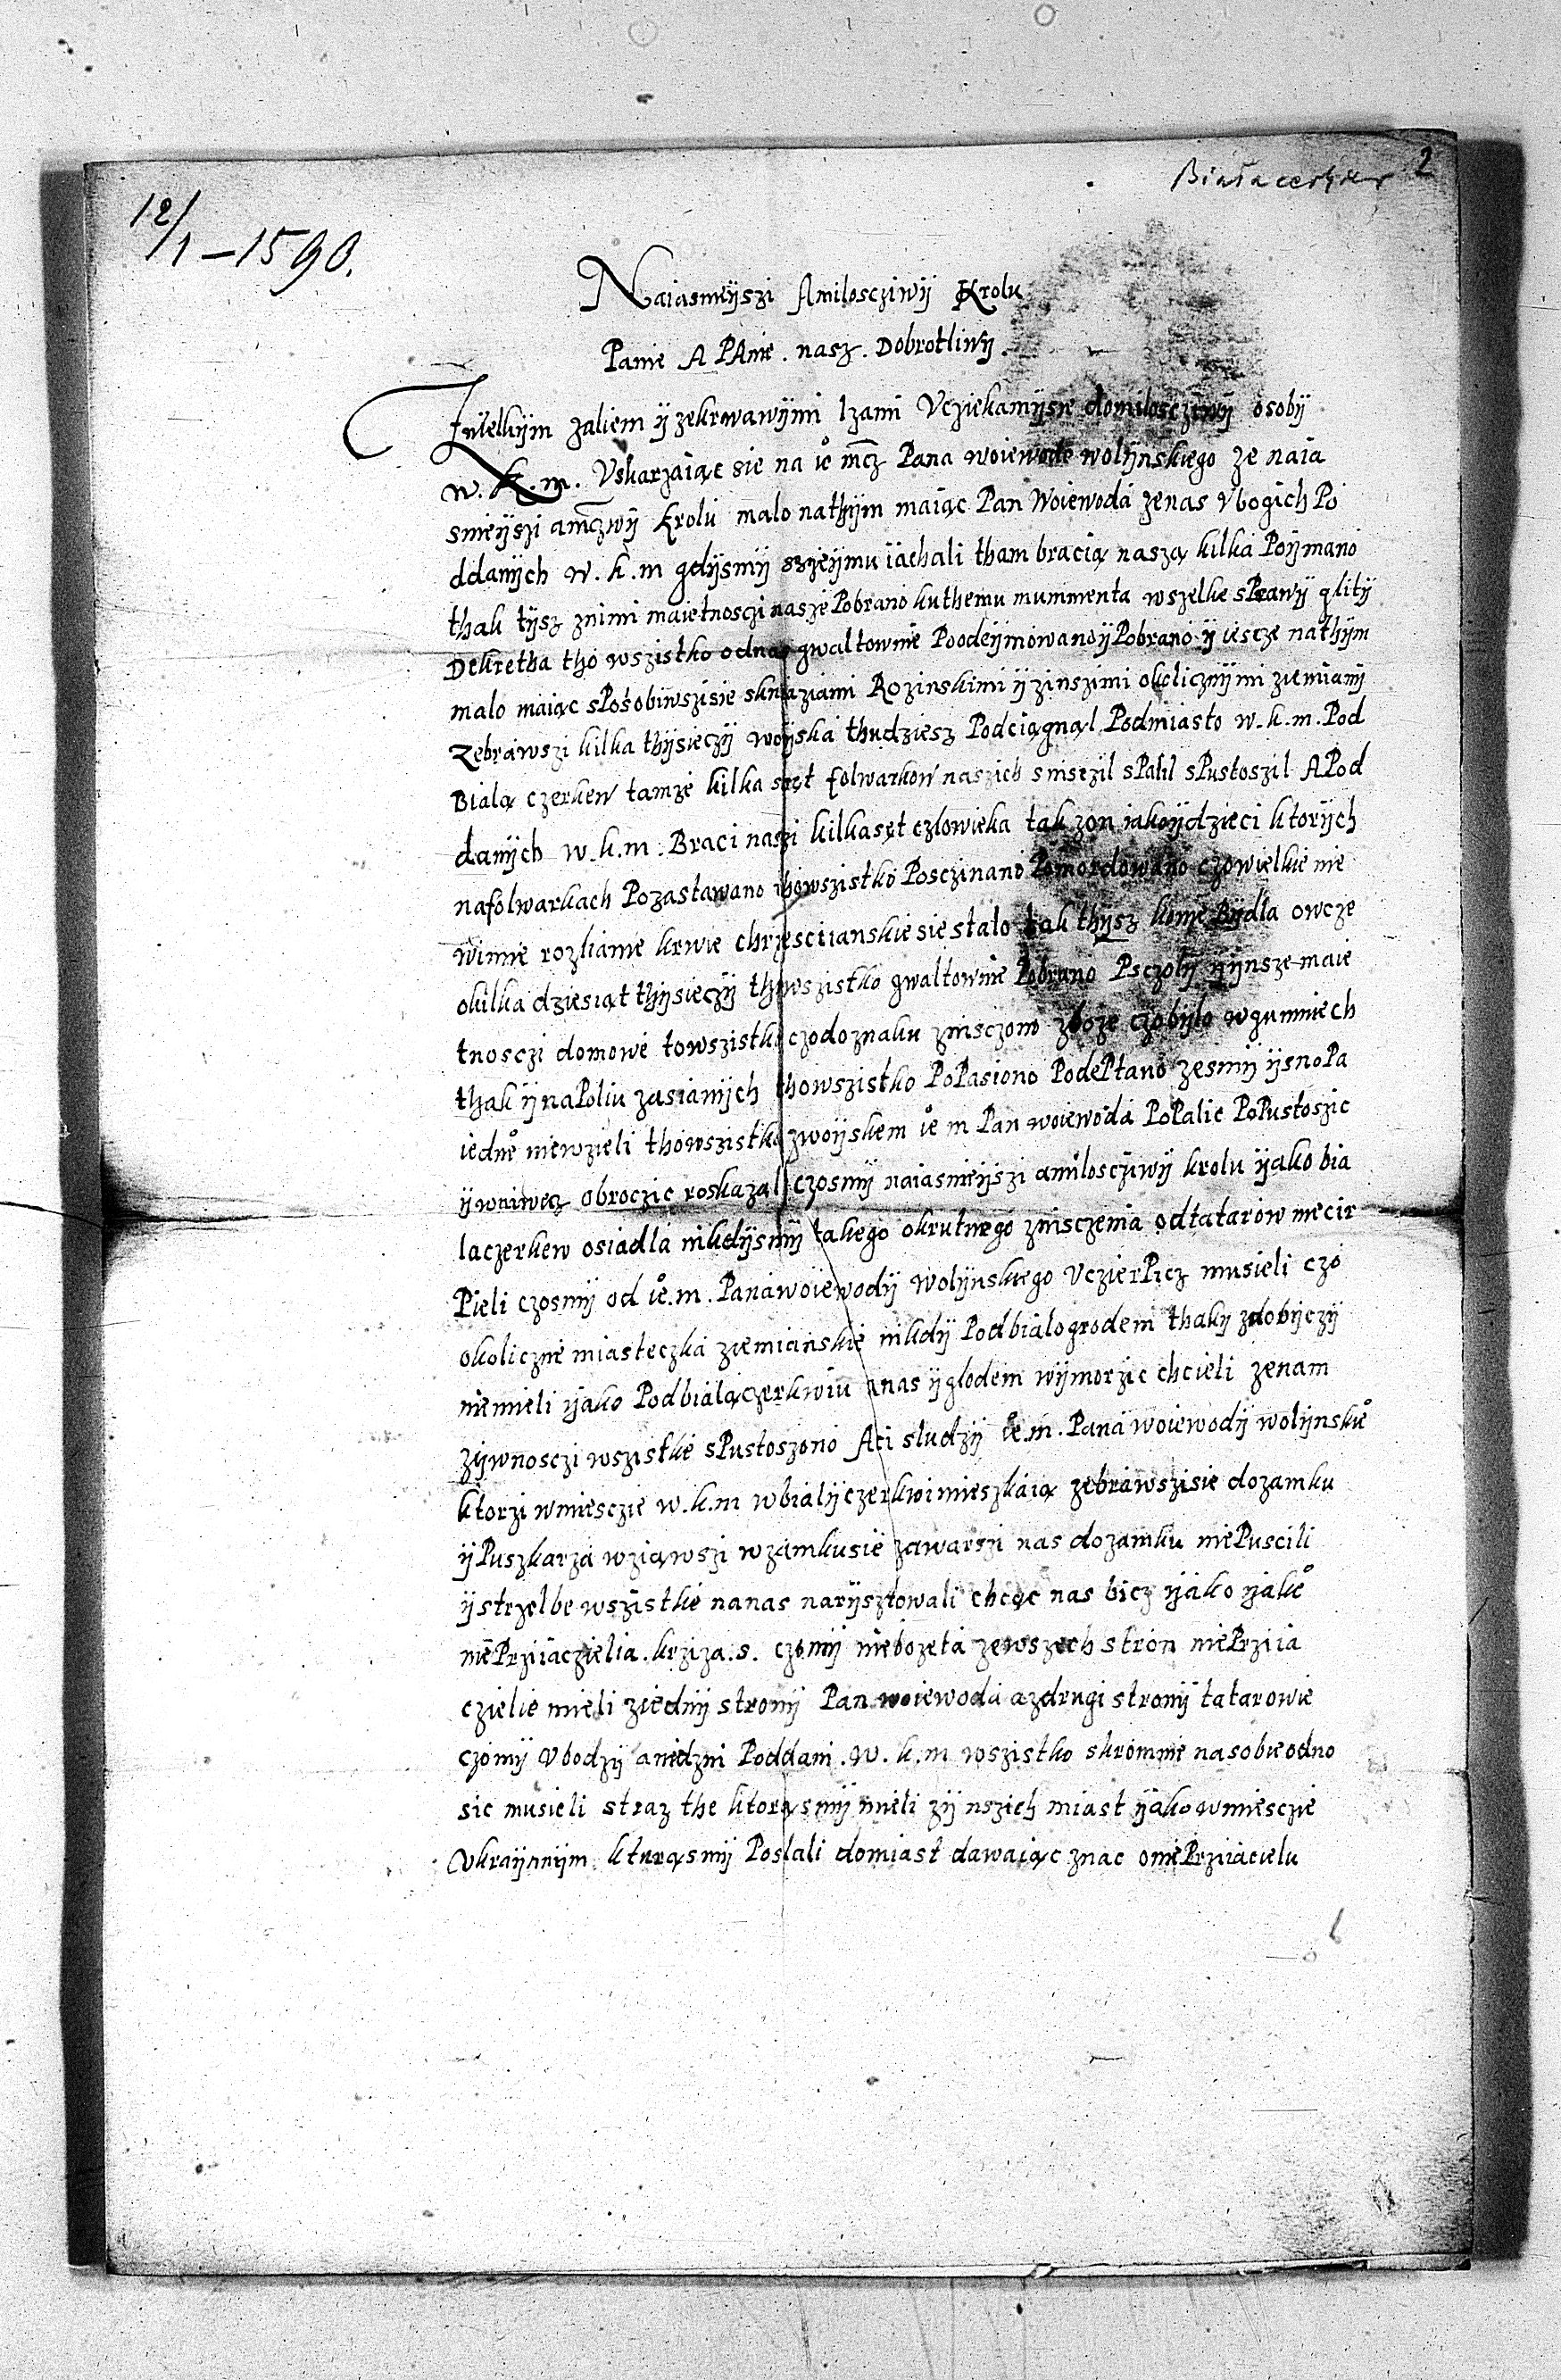 2
12/1 – 1590.
Naiasnieyszi Amiloscziwÿ Krolu
Panie A PAnie . nasz . Dobrotliwÿ .
Zwielkÿm zaliem ÿ zekrwawÿmi lzami Vcziekamÿsie domilosczÿwÿ osobÿ
w . k . m . Vskarzaiąc sie na ie͛ mcz Pana woiewode wolÿnskiego ze naia
snieÿszi amczwÿ Krolu malo nathÿm maiąc Pan Woiewoda zenas Vbogich Po
ddanÿch w . k . m gdÿsmÿ sszeÿmu iachali tham bracią naszą kilka Poÿmano
thak tÿsz znimi maietnosczi nasze Pobrano kuthemu mummenta wszelke sPrawÿ qlitÿ
Dekretha tho wszistko odnas gwaltownie PoodeÿmowanoÿPobrano ÿ iescze nathÿm
malo maiąc sPosobiwszisie skniaziami Rozinskimi ÿ zinszimi okolicznÿmi ziemianÿ
Zebrawszi kilka thÿsieczÿ woÿska thudziesz Podciągnąl Podmiasto w . k . m . Pod
Bialą czerkew tamze kilka sąt folwarkow naszich snisczil sPalil sPustoszil APod
danÿch w . k . m . Braci naszi kilkasąt czlowieka tak zon iakoÿdzieci ktorÿch
nafolwarkach Pozastawano thowszistko Posczinano Pomordowano czowielkie nie
winne rozlianie krwie chrzescianskie sie stalo tak thÿsz konie Bÿdla owcze
okilka dziesiąt thÿsieczÿ thowszistko gwaltownie Pobrano Psczolÿ ÿÿnsze maie
tnosczi domowe towszistko czodoznaku znisczono zboze czobÿlo wgumniech
thak ÿ naPoliu zasianÿch thowszistko PoPasiono PodePtano zesmÿ ÿsnoPa
iedne͛ niewzieli thowszistko zwoÿskem ie͛ m Pan woiewoda PoPalic PoPustoszic
ÿ wniwecz obroczic roskazal czosmÿ naiasnieÿszi amilosczÿwÿ krolu ÿako bia
laczerkew osiadla nikdÿsmÿ takego okrutnego znisczenia odtatarow niecir
Pieli czosmÿ od ie͛ . m . Panawoiewodÿ wolÿnskiego VczierPicz musieli czo
okoliczne miasteczka ziemianskie nikdÿ Podbialogrodem thakÿ zdobÿczÿ
niemieli ÿako Podbialączerkwiu anas ÿglodem wÿmorzic chcieli zenam
zÿwnosczi wszistkie sPustoszono Aci sludzÿ ie͛ . m . Pana woiewodÿ wolÿnskie͛
ktorzi wmiesczie w . k . m wbialÿczerkwimieszkaią zebrawszisie dozamku
ÿPuszkarza wziąwszi wzamkusie zawarszi nas dozamku niePuscili
ÿstrzelbe wszistkie nanas narÿsztowali chcąc nas bicz ÿako ÿakie͛
niePrziiaczielia . krziza . s . czomÿ niebozeta zewszech stron niePrziia
czielie mieli ziednÿ stronÿ Pan woiewoda azdrugi stronÿ tatarowie
czomÿ Vbodzÿ anedzni Poddani . w . k . m wszistko skromnie nasobieodno
sic musieli straz the ktorąsmÿ mieli zÿnszich miast ÿako wmiesczie
Vkraÿnnÿm kturąsmÿ Poslali domiast dawaiąc znac oniePrziiacielu